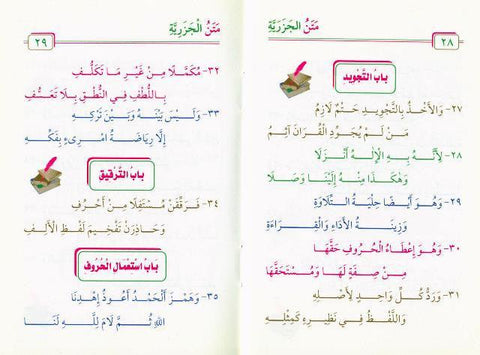 مَتْنُ الْجَزَرِيَّةِ
٢٨
بَابُ التَّجْوِيدِ
٢٧- وَالْأَخْذُ بِالتَّجْوِيدِ حَتْمٌ لَازِمُ
مَنْ لَمْ يُجَوِّدِ الْقُرَانَ آثِمُ
٢٨- لِأَنَّهُ بِهِ الْإِلَٰهُ أَنْزَلَا
وَهَٰكَذَا مِنْهُ إِلَيْنَا وَصَلَا
٢٩- وَهُوَ أَيْضًا حِلْيَةُ التِّلَاوَةِ
وَزِينَةُ الْأَدَاءِ وَالْقِرَاءَةِ
٣٠- وَهُوَ إِعْطَاءُ الْحُرُوفِ حَقَّهَا
مِنْ صِفَةٍ لَهَا وَمُسْتَحَقَّهَا
٣١- وَرَدُّ كُلِّ وَاحِدٍ لِأَصْلِهِ
وَاللَّفْظُ فِي نَظِيرِهِ كَمِثْلِهِ
مَتْنُ الْجَزَرِيَّةِ
٢٩
٣٢- مُكَمَّلًا مِنْ غَيْرِ مَا تَكَلُّفِ
بِاللُّطْفِ فِي النُّطْقِ بِلَا تَعَسُّفِ
٣٣- وَلَيْسَ بَيْنَهُ وَبَيْنَ تَرْكِهِ
إِلَّا رِيَاضَةُ امْرِئٍ بِفَكِّهِ
بَابُ التَّرْقِيقِ
٣٤- فَرَقِّقَنْ مُسْتَفِلًا مِنْ أَحْرُفِ
وَحَاذِرَنْ تَفْخِيمَ لَفْظِ الْأَلِفِ
بَابُ اسْتِعْمَالِ الْحُرُوفِ
٣٥- وَهَمْزَ أَلْحَمْدُ أَعُوذُ إِهْدِنَا
اللهُ ثُمَّ لَامَ لِلَّهِ لَنَا